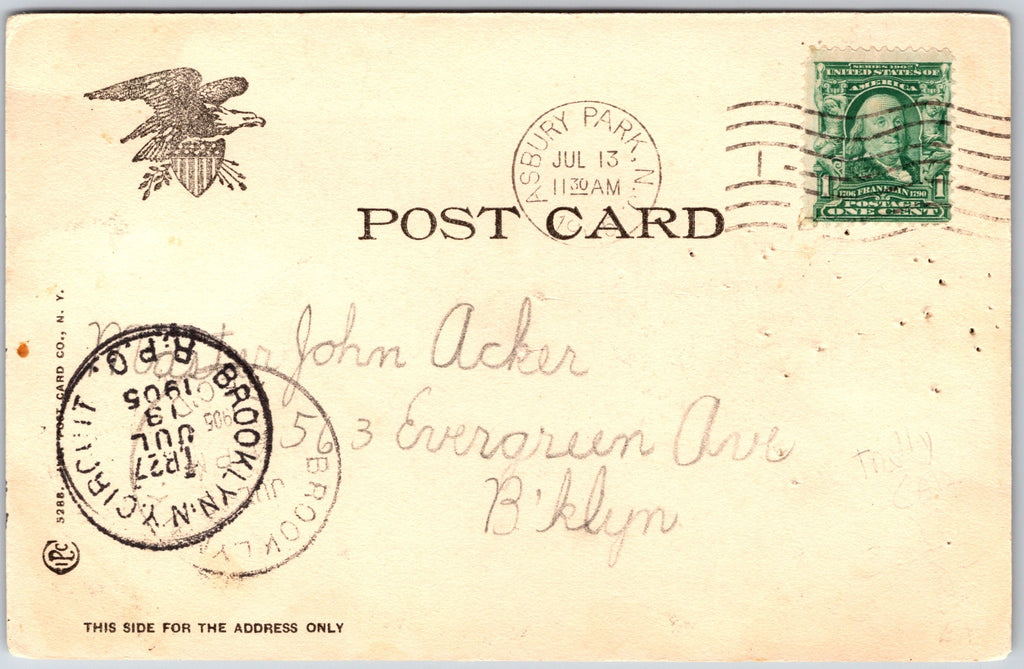 SERIES 1902
UNITED STATES OF
AMERICA
1 1
1706 FRANKLIN 1790
POSTAGE
ONE CENT
ASBURY PARK, N.J.
JUL 13
11 30 AM
POST CARD
Master John Acker
563 Evergreen Ave
B'klyn
BROOKLYN. N.Y. CIRCUIT
R.P.O.
TR27
JUL
13
1905
BROOKLY
5288. POST CARD CO., N. Y.
IPC
THIS SIDE FOR THE ADDRESS ONLY